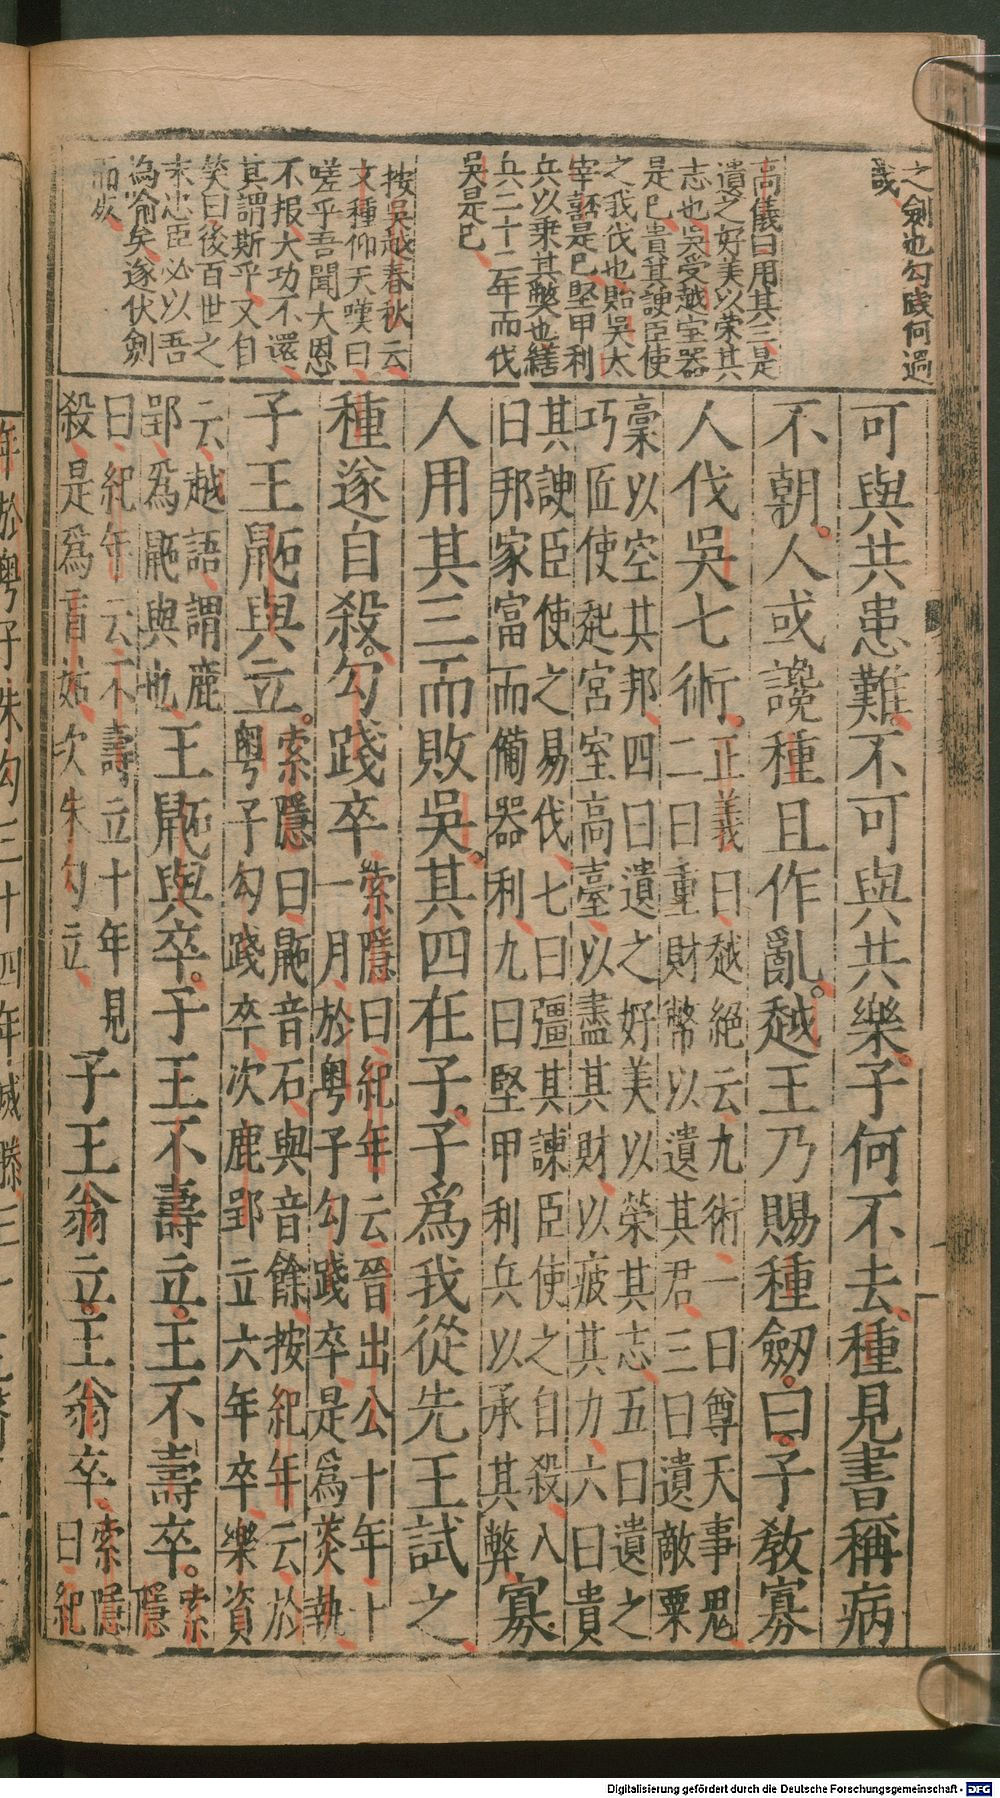 之劍也勾踐何過
誅
高儀曰用其三是
遺之好美以荣其
志也吳受越宝器
是已貴其諛臣使
之我伐也貽吳太
宰嚭是已堅甲利
兵以乗其獘也繕
兵二十二年而伐
吳是已
按吳越春秋云
文種仰天嘆曰
嗟乎吾聞大恩
不报大功不還
其謂斯乎又自
笑曰後百世之
末忠臣必以吾
為喻矣遂伏劍
而死
可與共患難不可與共樂子何不去種見書稱病
不朝人或讒種且作亂越王乃賜種劒曰子敎寡
人伐吳七術
正義曰越絕云九術一曰尊天事鬼
二曰重財幣以遺其君三曰遺敵粟
槀以空其邦四曰遺之好美以榮其志五曰遺之
巧匠使起宮室高臺以盡其財以疲其力六曰貴
其諛臣使之易伐七曰彊其諫臣使之自殺八
曰邦家富而備器利九曰堅甲利兵以承其弊
寡
人用其三而敗吳其四在子子爲我從先王試之
種遂自殺勾踐卒
索隱曰紀年云晉出公十年十
一月於粤子勾踐卒是爲菼執
子王鼫與立
索隱曰鼫音石與音餘按紀年云於
粤子勾踐卒次鹿郢立六年卒樂資
云越語謂鹿
郢爲鼫與也
王鼫與卒子王不壽立王不壽卒
索
隱
曰紀年云不壽立十年見
殺是爲盲姑次朱勾立
子王翁立王翁卒
索隱
曰紀
年於粤子朱勾三十四年滅滕三十
Digitalisierung gefördert durch die Deutsche Forschungsgemeinschaft - DFG